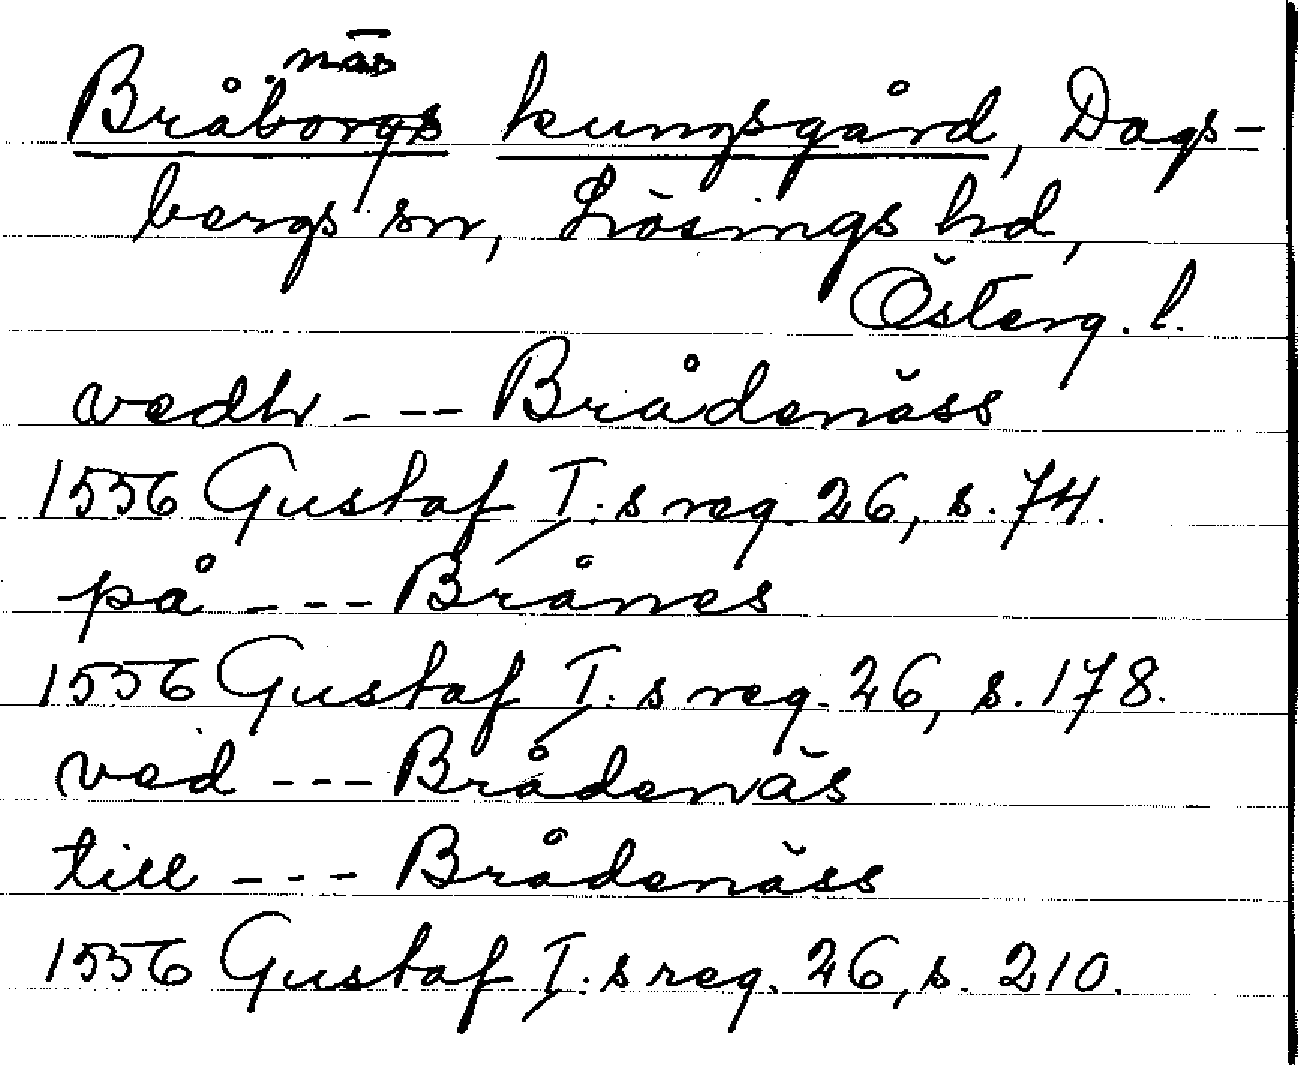 näs
Bråborgs kungsgård, Dags-
bergs sn, Lösings hd,
Österg. l.
vedh --- Brådenäss
1556 Gustaf I:s reg. 26, s. 74.
på --- Brånes
1556 Gustaf I:s reg. 26, s. 178.
ved --- Brådenäs
till --- Brådenäss
1556 Gustaf I:s reg. 26, s. 210.